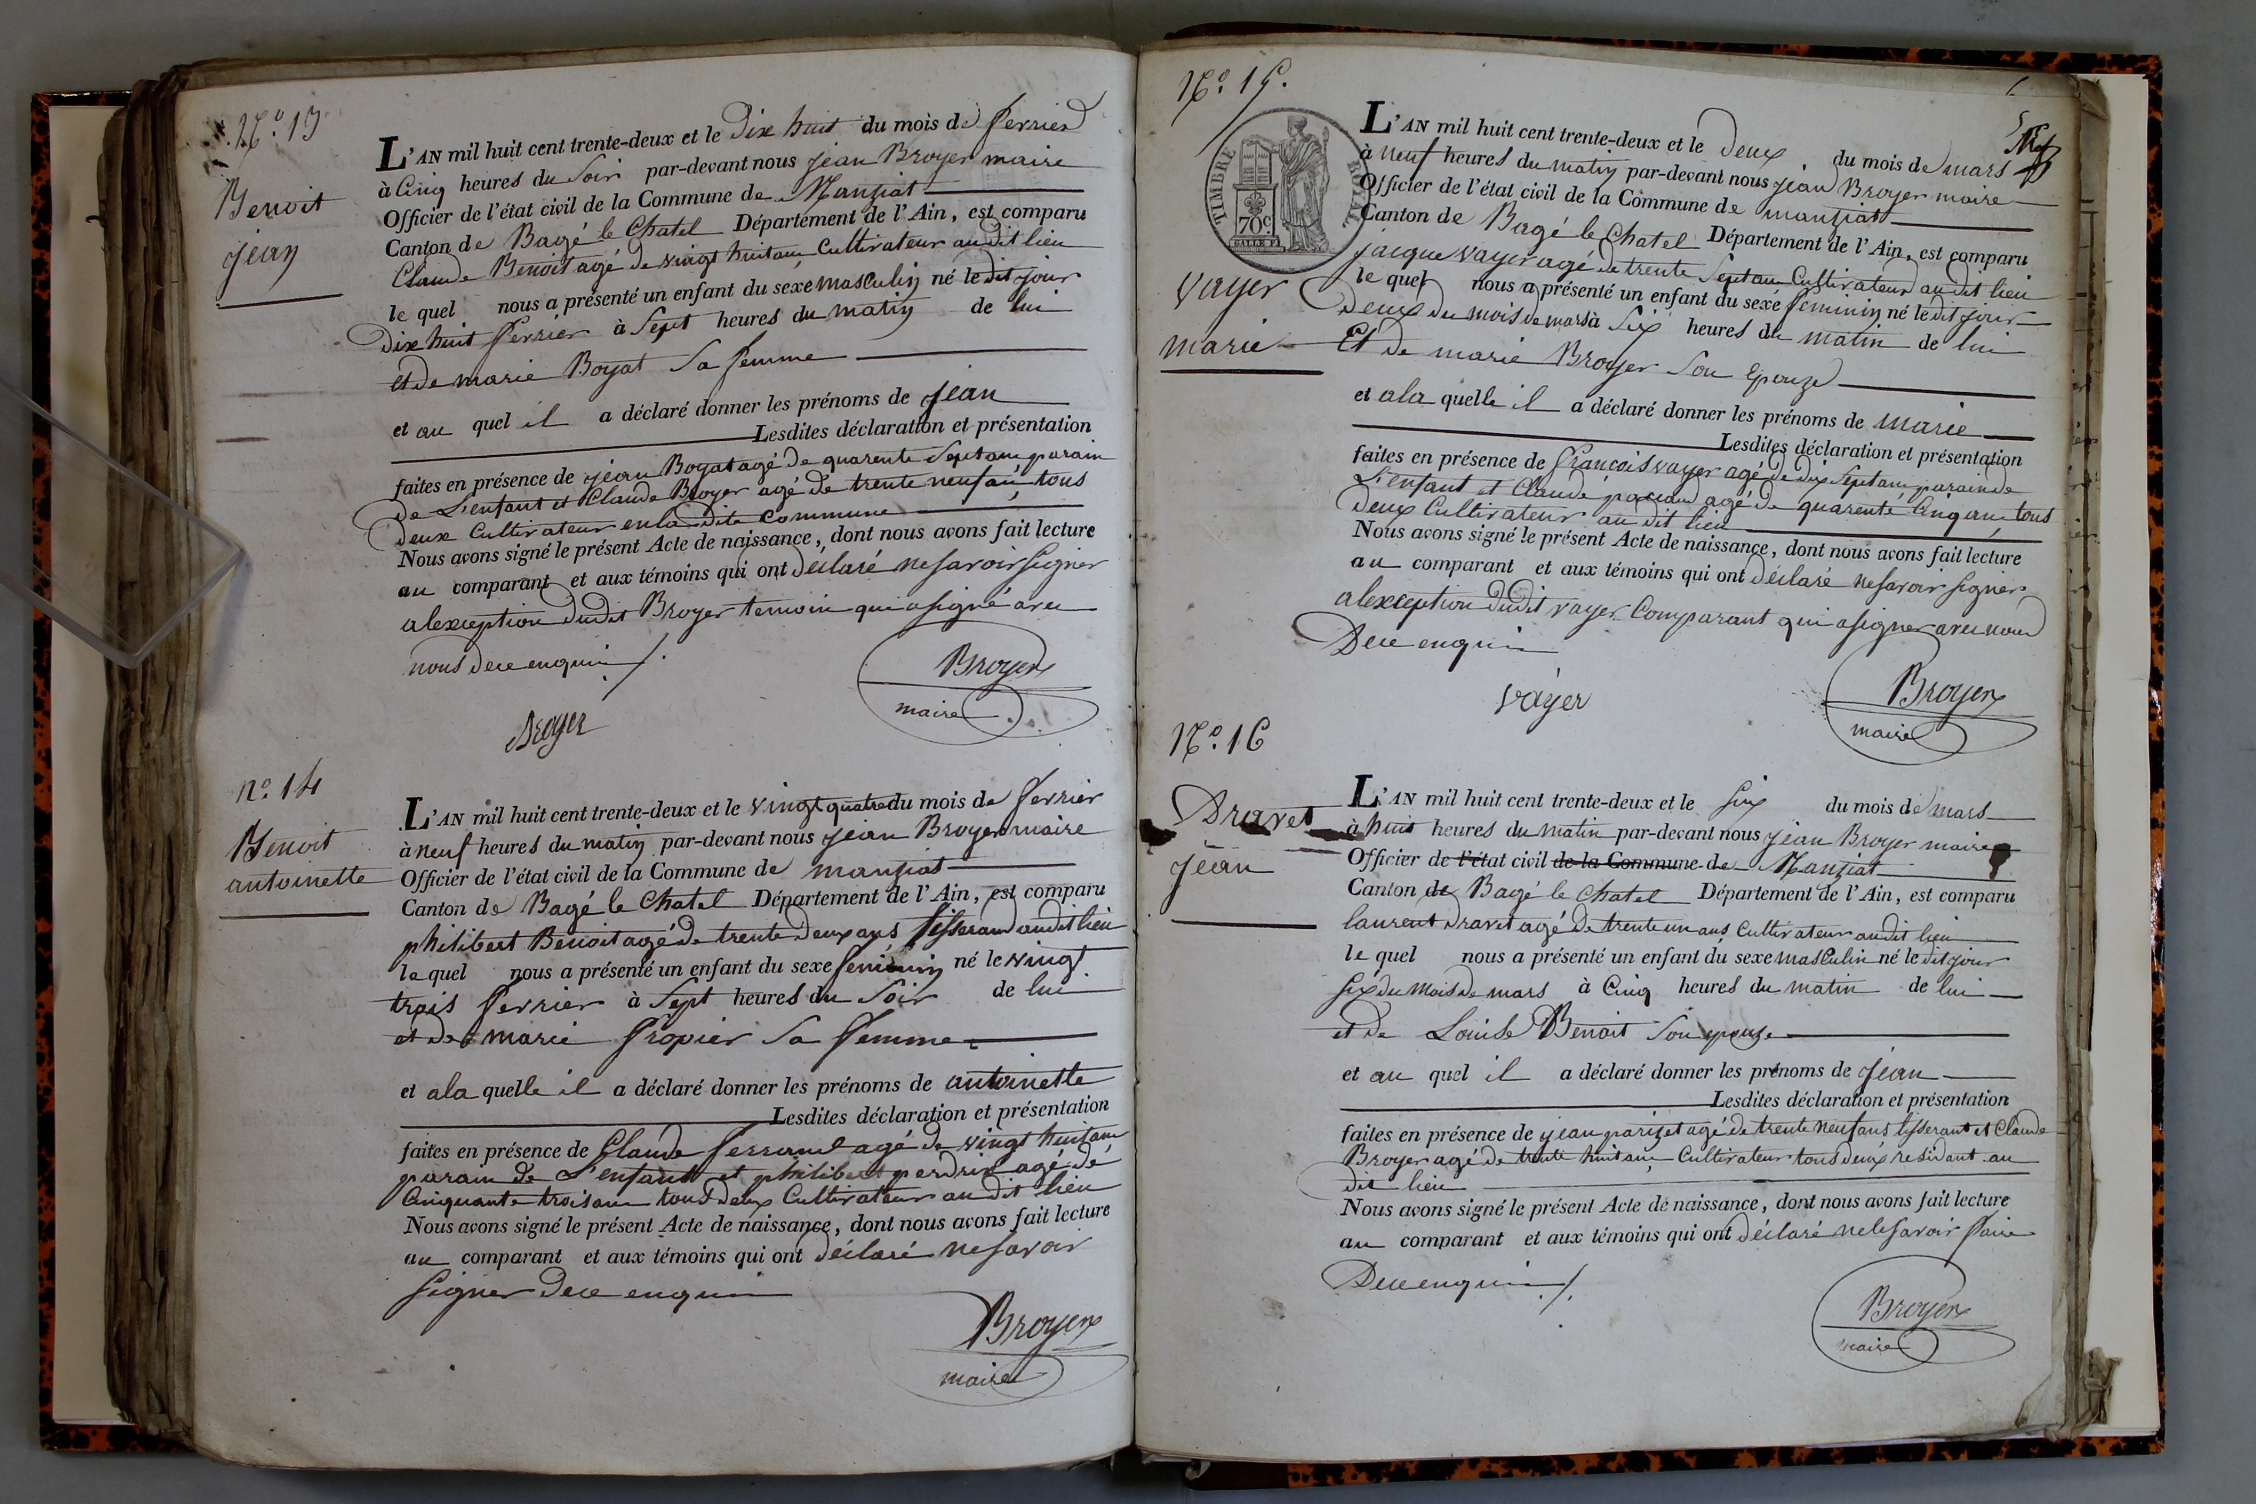 N.º 13
Benoit
jean
L'AN mil huit cent trente-deux et le Dix huit du mois de fevrier
à Cinq heures du Soir par-devant nous jean Broyer maire
Officier de l'état civil de la Commune de Manziat
Canton de Bagé le Chatel Département de l'Ain, est comparu
Claude Benoit agé de vingt huit ans Cultivateur audit lieu
le quel nous a présenté un enfant du sexe masculin né le dit jour
Dix huit fevrier à Sept heures du matin de lui
et de marie Boyat Sa femme
et au quel il a déclaré donner les prénoms de jean
Lesdites déclaration et présentation
faites en présence de jean Boyat agé de quarente Sept ans parain
de L'enfant et Claude Broyer agé de trente neuf ans tous
deux Cultivateur en la dite Commune
Nous avons signé le présent Acte de naissance, dont nous avons fait lecture
au comparant et aux témoins qui ont déclaré ne savoir signer
alexception dudit Broyer temoin qui a signé avec
nous dece enquis
Broyer
maire
Broyer
n.º 14
Benoit
antoinette
L'AN mil huit cent trente-deux et le vingt quatre du mois de fevrier
à neuf heures du matin par-devant nous jean Broyer maire
Officier de l'état civil de la Commune de manziat
Canton de Bagé le Chatel Département de l'Ain, est comparu
philibert Benoit agé de trente deux ans tisserand audit lieu
le quel nous a présenté un enfant du sexe feminin né le vingt
trois fevrier à Sept heures du Soir de lui
et de marie Propier Sa femme
et ala quelle il a déclaré donner les prénoms de antoinette
Lesdites déclaration et présentation
faites en présence de Claude ferrand agé de vingt huit ans
parain de L'enfant et philibert perdrix agé de
Cinquante trois ans tous deux Cultivateur audit lieu
Nous avons signé le présent Acte de naissance, dont nous avons fait lecture
au comparant et aux témoins qui ont déclaré ne savoir
signer dece enquis
Broyer
maire
N.º 15.
TIMBRE ROYAL
70 c
Vayer
marie
L'AN mil huit cent trente-deux et le Deux du mois de mars
à neuf heures du matin par-devant nous jean Broyer maire
Officier de l'état civil de la Commune de manziat
Canton de Bagé le Chatel Département de l'Ain, est comparu
jacque vayer agé de trente Sept ans Cultivateur au dit lieu
le quel nous a présenté un enfant du sexe feminin né le dit jour
Deux du mois de mars à Six heures du matin de lui
Et de marie Broyer Son Epouze
et ala quelle il a déclaré donner les prénoms de marie
Lesdites déclaration et présentation
faites en présence de francois vayer agé de dix Sept ans parain de
L'enfant et Claude pacaud agé de quarente Cinq ans tous
deux Cultivateur au dit lieu
Nous avons signé le présent Acte de naissance, dont nous avons fait lecture
au comparant et aux témoins qui ont déclaré ne savoir signer
alexception dudit vayer Comparant qui a signer avec nous
Dece enquis
Broyer
maire
vayer
N.º 16
Dravet
jean
L'AN mil huit cent trente-deux et le Six du mois de mars
à huit heures du matin par-devant nous jean Broyer maire
Officier de l'état civil de la Commune de Manziat
Canton de Bagé le Chatel Département de l'Ain, est comparu
laurent Dravet agé de trente un ans Cultivateur audit lieu
le quel nous a présenté un enfant du sexe masculin né le dit jour
Six du mois de mars à Cinq heures du matin de lui
et de Louise Benoit Son epouze
et au quel il a déclaré donner les prénoms de jean
Lesdites déclaration et présentation
faites en présence de jean parizet agé de trente neuf ans tisserant et Claude
Broyer agé de trente huit ans Cultivateur tous deux residant au
dit lieu
Nous avons signé le présent Acte de naissance, dont nous avons fait lecture
au comparant et aux témoins qui ont déclaré ne le savoir faire
Dece enquis
Broyer
maire